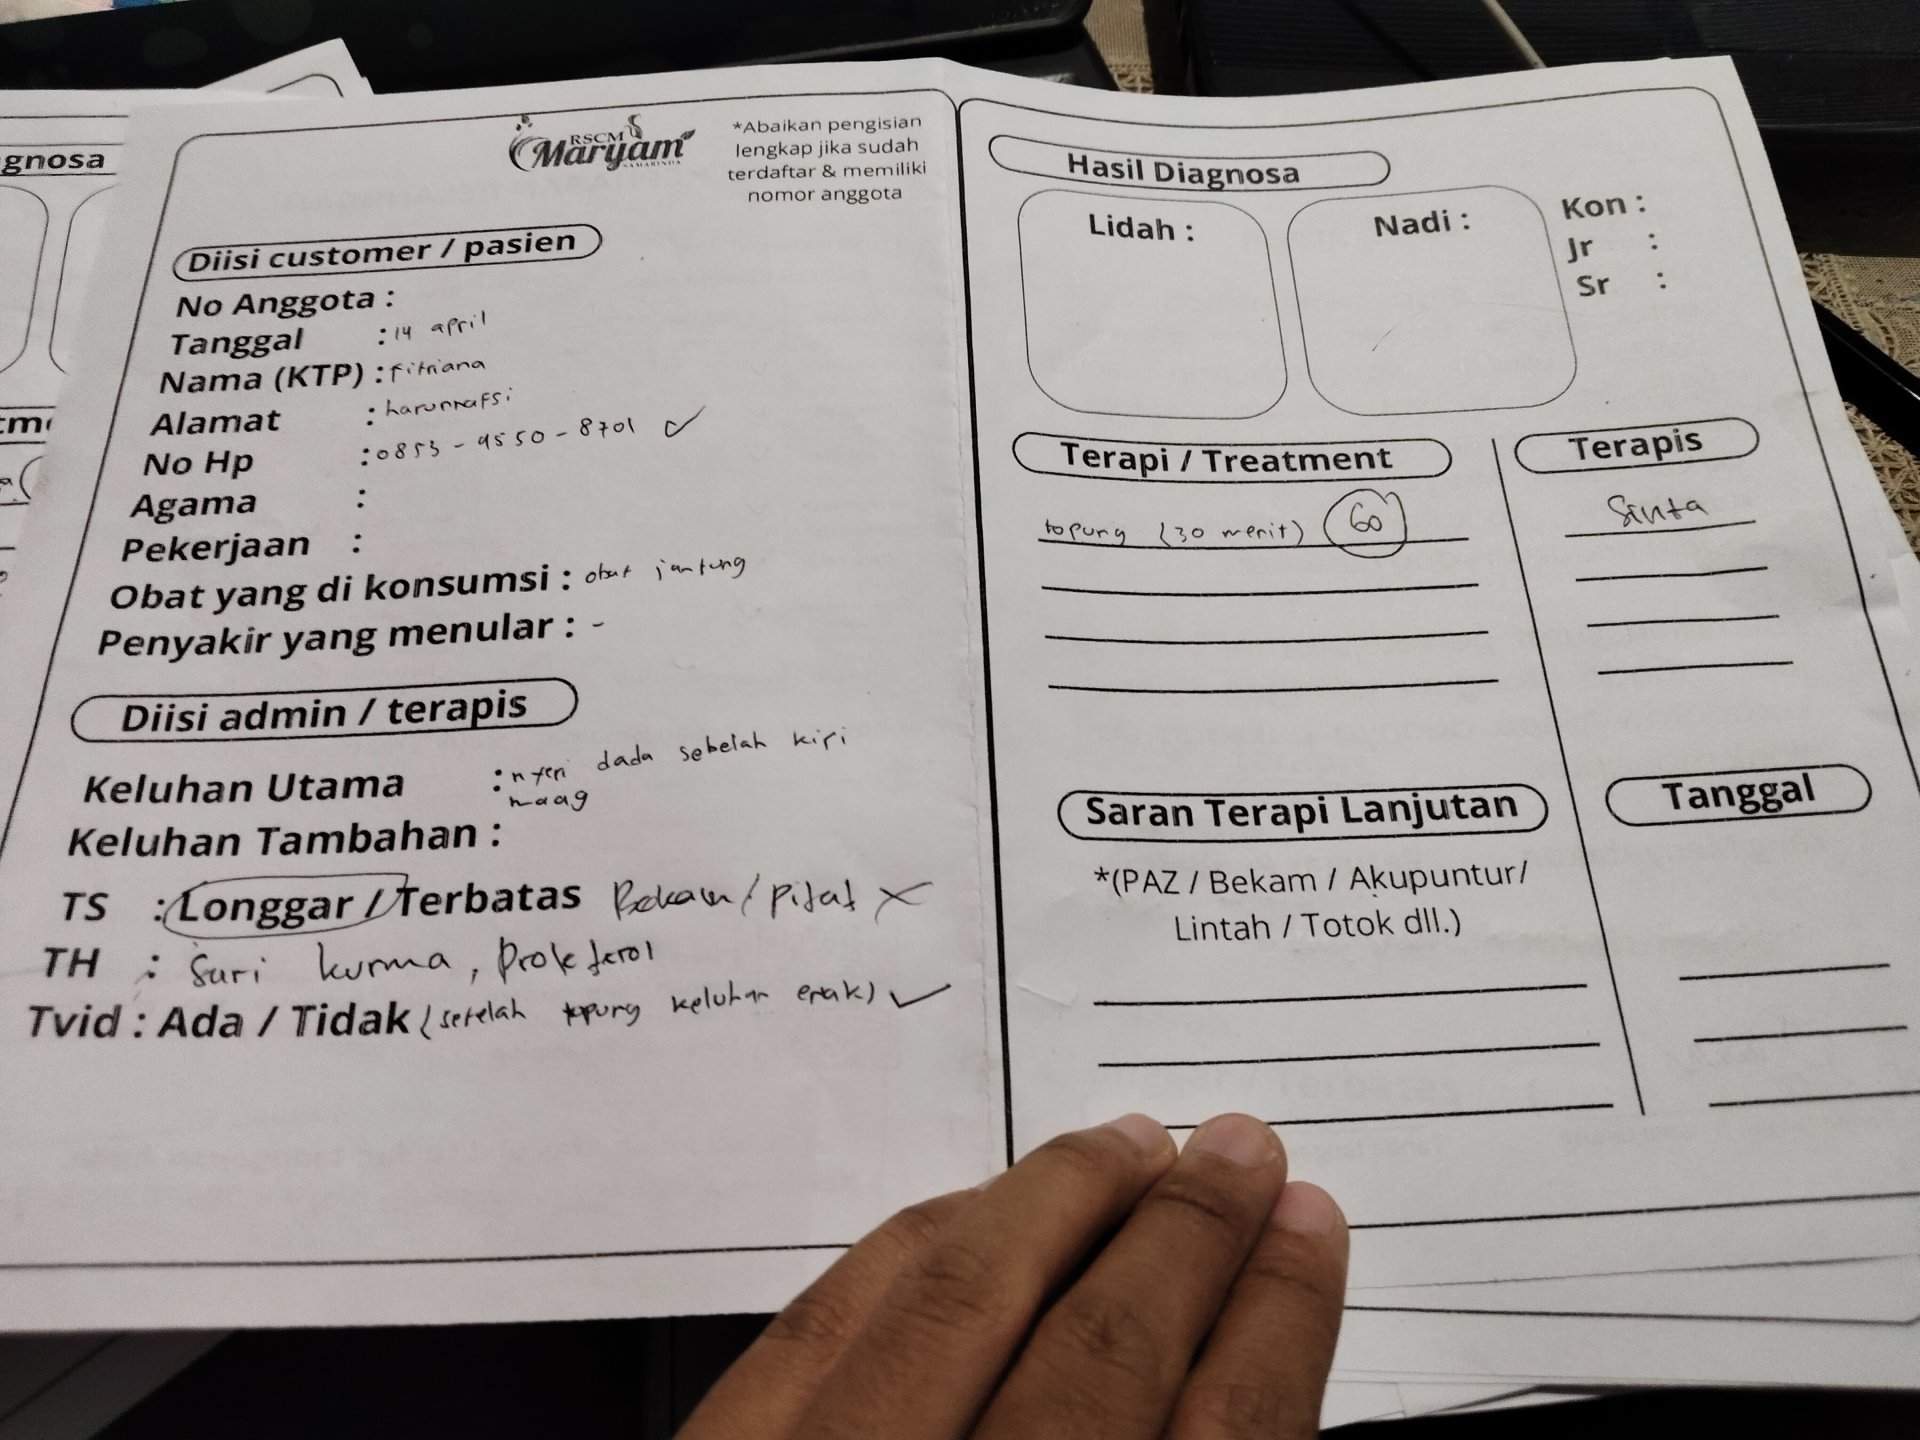 RSCM
Maryam
SAMARINDA
*Abaikan pengisian
lengkap jika sudah
terdaftar & memiliki
nomor anggota
Diisi customer / pasien
No Anggota :
Tanggal : 14 april
Nama (KTP) : fitriana
Alamat : harunnafsi
No Hp : 0853 - 9550 - 8701 ✓
Agama :
Pekerjaan :
Obat yang di konsumsi : obat jantung
Penyakir yang menular : -
Diisi admin / terapis
Keluhan Utama : nyeri dada sebelah kiri
maag
Keluhan Tambahan :
TS : Longgar / Terbatas Bekam / pijat X
TH : Sari kurma, Prolesterol
Tvid : Ada / Tidak (setelah topung keluhan enak) ✓
Hasil Diagnosa
Lidah :
Nadi :
Kon :
Jr :
Sr :
Terapi / Treatment
topung (30 menit) 60
Terapis
Sinta
Saran Terapi Lanjutan
*(PAZ / Bekam / Akupuntur/
Lintah / Totok dll.)
Tanggal
gnosa